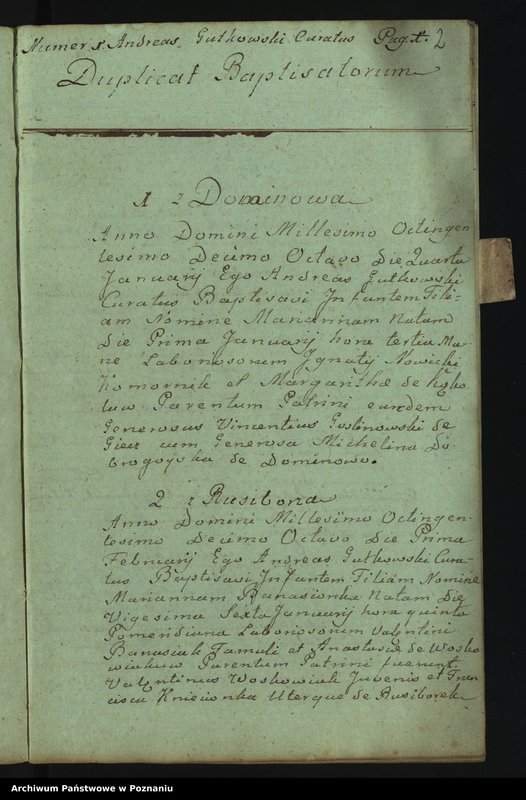 Numer 1. Andreas Gutkowski Curatus Pag. 1. 2
Duplicat Baptisatorum
1 z Dominowa
Anno Domini Millesimo Octingen
tesimo Decimo Octavo Die Quarta
Januarij Ego Andreas Gutkowski
Curatus Baptisavi Infantem Fili-
am Nomine Mariannam Natam
Die Prima Januarij hora tertia Ma-
ne Laboriosorum Ignatij Nowicki
Komornik et Margarithæ de
Parentum Patrini eundem
Generosus Vincentius de
Giecz cum Generosa Michelina Do
brogoyska de Dominowo.
2 z Rusiborza
Anno Domini Millesimo Octingen-
tesimo Decimo Octavo Die Prima
Februarij Ego Andreas Gutkowski Cura-
tus Baptisavi Infantem Filiam Nomine
Mariannam Banasionka Natam Die
Vigesima Sexta Januarij hora quinta
Pomeridiana Laboriosorum Valentini
Banasiak Famuli et Anastasiæ de Wosko
wiakow Parentum Patrini fuerunt
Valentinus Woskowiak Juvenis et Fran
cisca Kniecionka Uterque de Rusiborek
Archiwum Państwowe w Poznaniu